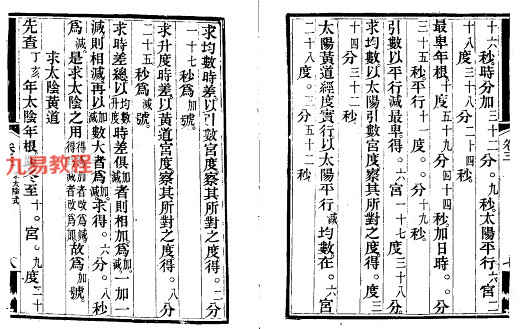 十六秒。時分加三十二分。九秒。太陽平行六宮二
十八度三十八分二十四秒
最卑年根。七度五十九分四十四秒加日時。。分
三十五秒。平行十一度。。分一十九秒。
引數以平行減最卑得。六宮一十七度三十八分
求均數以太陽引數宮度察其所對之度得。度三
十四分三十二秒。
太陽黃道經度實行以太陽平行減均數在。六宮
二十八度。三分五十二秒
求均數時差以引數宮度察其所對之度得。二分
一十七秒爲加號。
求升度時差以黃道宮度察其所對之度得。八分
二十五秒爲減號
求時差總以均數升度時差俱加減者則相加爲加減一加一
減則相減再以加減數大者爲加減求得。六分。八秒
爲減號是求太陰之用得減號者改爲加得加號者改爲減故爲加號
求太陰黃道
先查丁亥年太陰年根冬至十。宮。九度三十
卷三
七
九易教程